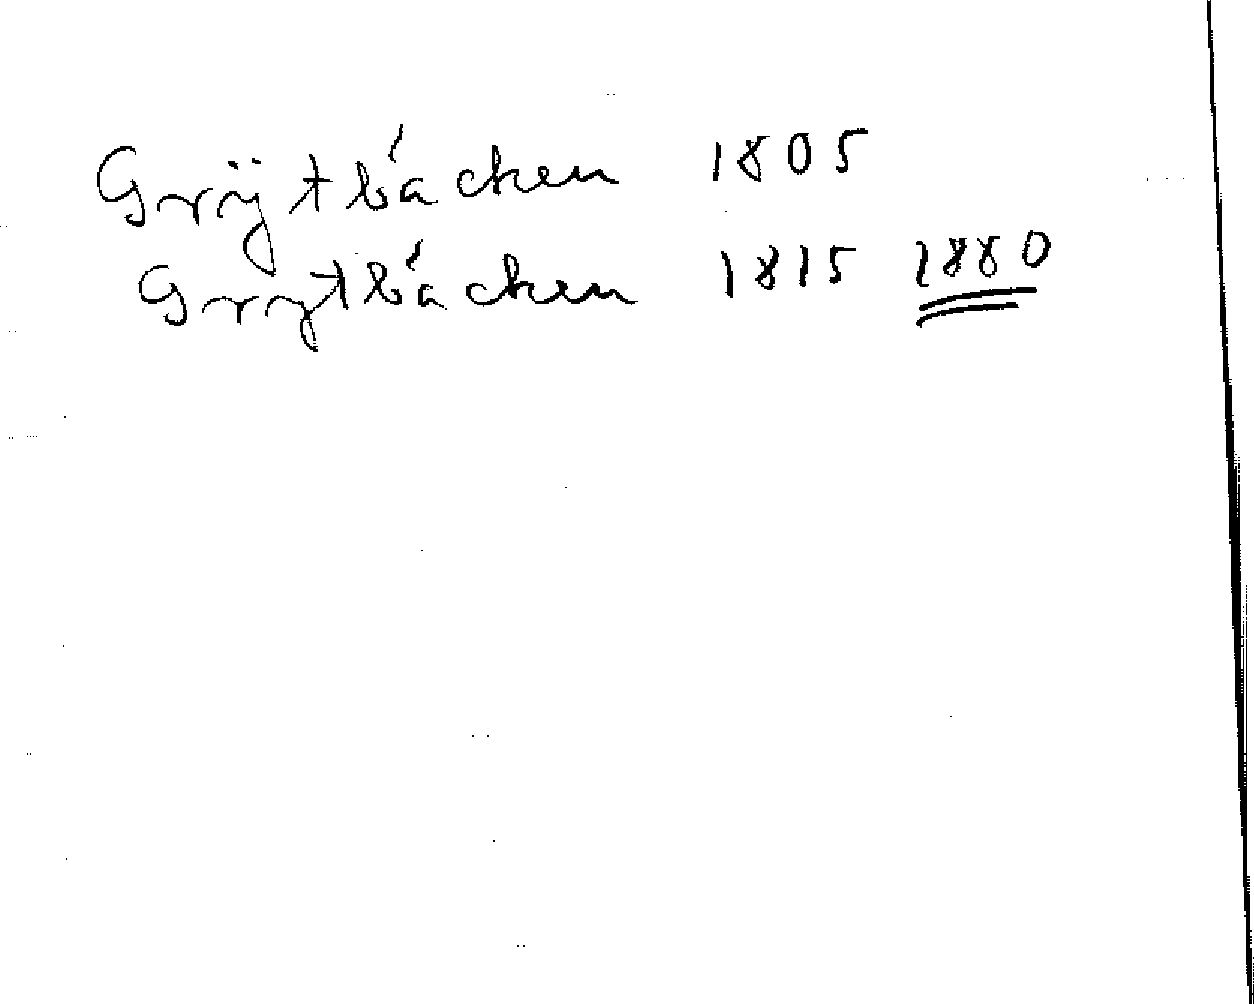 Grÿtbácken 1805
Grytbácken 1815 1880